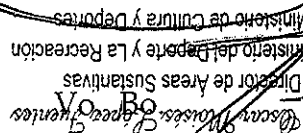 Oscar Moisés López Fuentes
Vo. Bo.
Director de Areas Sustantivas
Ministerio del Deporte y La Recreación
Ministerio de Cultura y Deportes